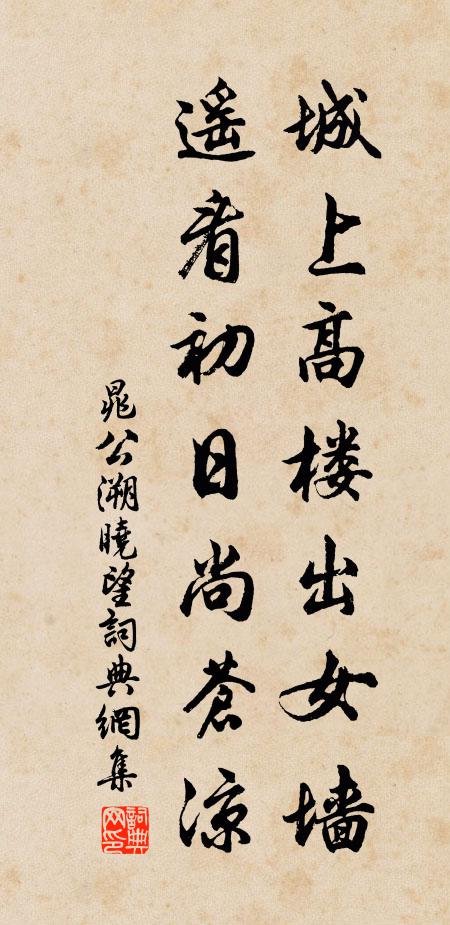 城上高楼出女墙
遥看初日尚苍凉
晁公溯曉望詞典網集
詞典網印